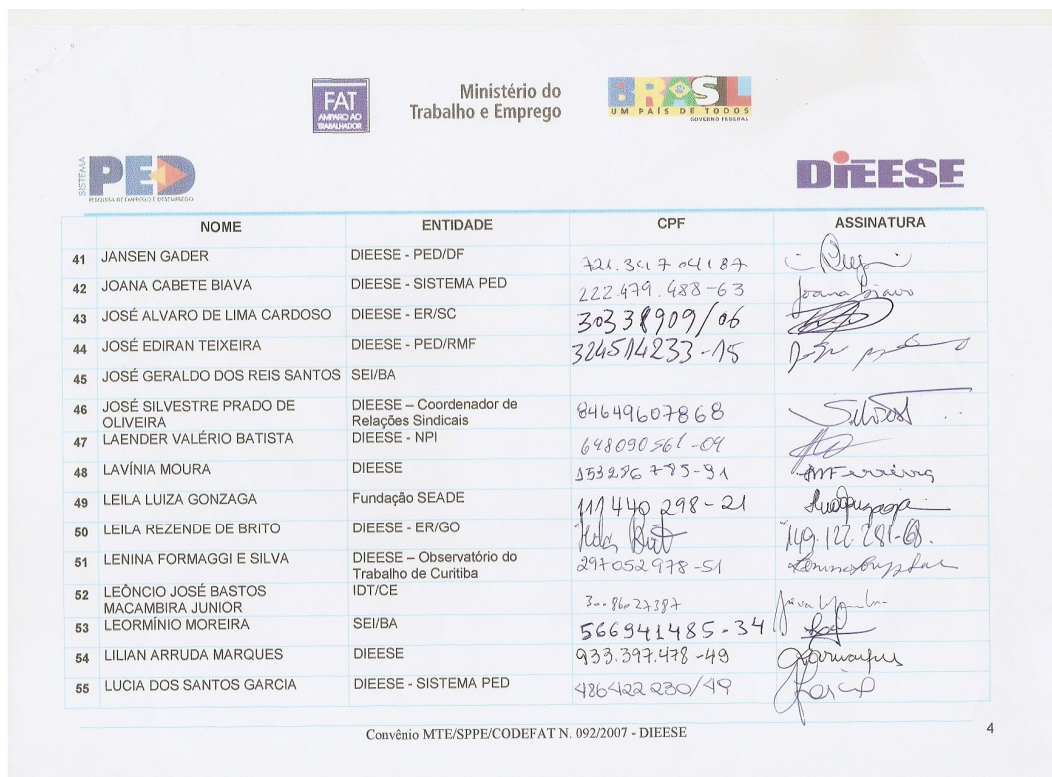 FAT
AMPARO AO
TRABALHADOR
Ministério do
Trabalho e Emprego
BRASIL
UM PAÍS DE TODOS
GOVERNO FEDERAL
SISTEMA
PED
PESQUISA DE EMPREGO E DESEMPREGO
DIEESE
NOME ENTIDADE CPF ASSINATURA
41 JANSEN GADER DIEESE - PED/DF
42 JOANA CABETE BIAVA DIEESE - SISTEMA PED 222.479.488-63 Joana Biava
43 JOSÉ ALVARO DE LIMA CARDOSO DIEESE - ER/SC
44 JOSÉ EDIRAN TEIXEIRA DIEESE - PED/RMF 324514233-15
45 JOSÉ GERALDO DOS REIS SANTOS SEI/BA
46 JOSÉ SILVESTRE PRADO DE
OLIVEIRA DIEESE – Coordenador de
Relações Sindicais 84649607868
47 LAENDER VALÉRIO BATISTA DIEESE - NPI
48 LAVÍNIA MOURA DIEESE 153286785-91
49 LEILA LUIZA GONZAGA Fundação SEADE 111440298-21
50 LEILA REZENDE DE BRITO DIEESE - ER/GO
51 LENINA FORMAGGI E SILVA DIEESE – Observatório do
Trabalho de Curitiba 297052978-51
52 LEÔNCIO JOSÉ BASTOS
MACAMBIRA JUNIOR IDT/CE
53 LEORMÍNIO MOREIRA SEI/BA 566941485-34
54 LILIAN ARRUDA MARQUES DIEESE 933.397.478-49
55 LUCIA DOS SANTOS GARCIA DIEESE - SISTEMA PED 486422230/49
Convênio MTE/SPPE/CODEFAT N. 092/2007 - DIEESE
4